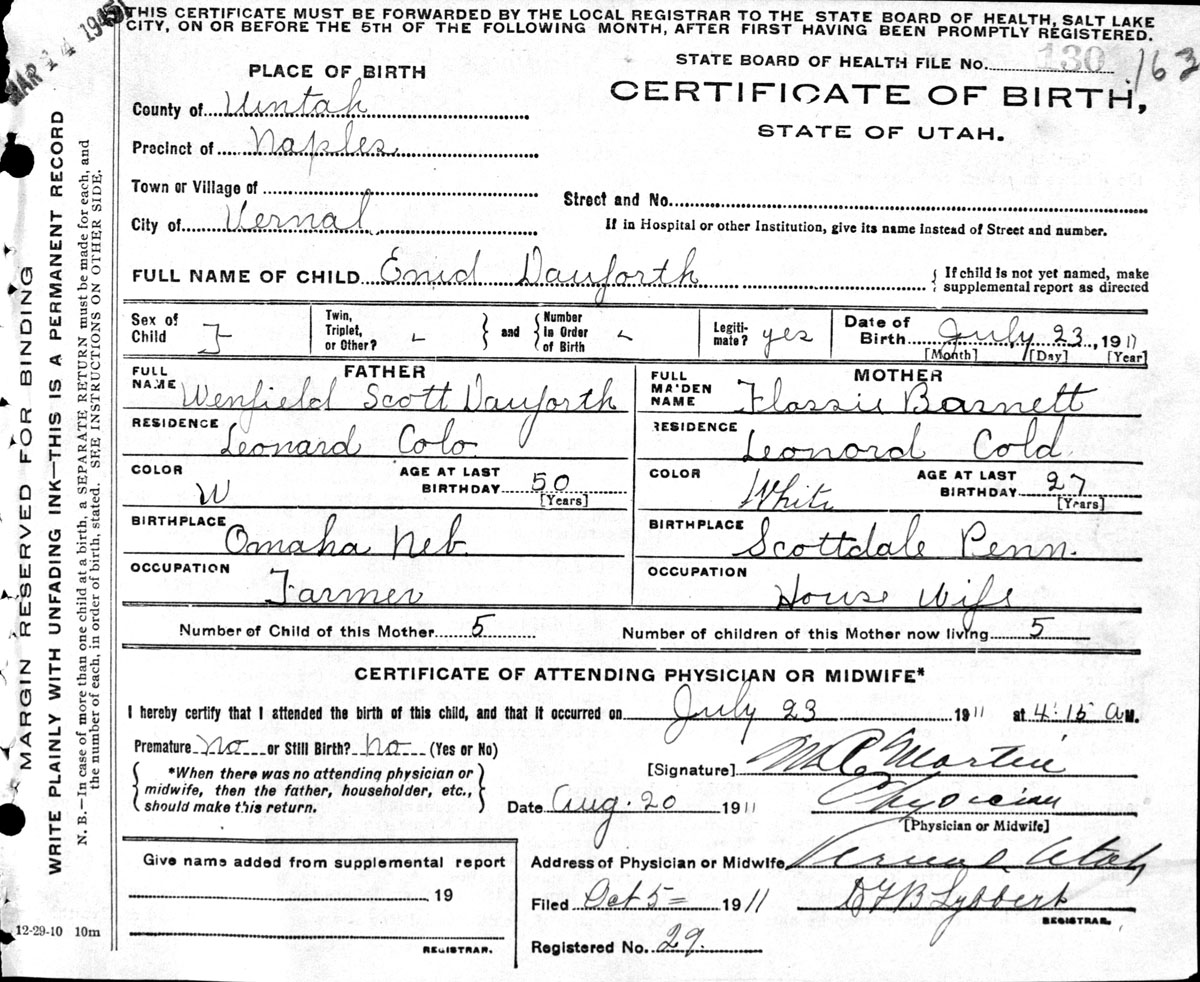 MAR 14 1945
THIS CERTIFICATE MUST BE FORWARDED BY THE LOCAL REGISTRAR TO THE STATE BOARD OF HEALTH, SALT LAKE
CITY, ON OR BEFORE THE 5TH OF THE FOLLOWING MONTH, AFTER FIRST HAVING BEEN PROMPTLY REGISTERED.
STATE BOARD OF HEALTH FILE No. 130 163
PLACE OF BIRTH
CERTIFICATE OF BIRTH,
STATE OF UTAH.
County of Uintah
Precinct of Naples
Town or Village of
Street and No.
City of Vernal
If in Hospital or other Institution, give its name instead of Street and number.
FULL NAME OF CHILD Enid Danforth
{ If child is not yet named, make
supplemental report as directed
Sex of Child F
Twin, Triplet, or Other? -
and
Number in Order of Birth -
Legiti-mate? yes
Date of Birth July 23, 1911
[Month] [Day] [Year]
FATHER
MOTHER
FULL NAME Wenfield Scott Danforth
FULL MAIDEN NAME Flossie Barnett
RESIDENCE Leonard Colo
RESIDENCE Leonord Cold
COLOR W
AGE AT LAST BIRTHDAY 50
[Years]
COLOR White
AGE AT LAST BIRTHDAY 27
[Years]
BIRTHPLACE Omaha Neb
BIRTHPLACE Scottdale Penn.
OCCUPATION Farmer
OCCUPATION House Wife
Number of Child of this Mother 5
Number of children of this Mother now living 5
CERTIFICATE OF ATTENDING PHYSICIAN OR MIDWIFE*
I hereby certify that I attended the birth of this child, and that it occurred on July 23 1911 at 4:15 a M.
Premature No or Still Birth? No (Yes or No)
*When there was no attending physician or
midwife, then the father, householder, etc.,
should make this return.
[Signature] Martin
Date Aug. 20 1911 Physician
[Physician or Midwife]
Give name added from supplemental report
19
REGISTRAR.
Address of Physician or Midwife Vernal Utah
Filed Oct 5 = 1911 Lybbert
REGISTRAR.
Registered No. 29.
12-29-10 10m
MARGIN RESERVED FOR BINDING
WRITE PLAINLY WITH UNFADING INK—THIS IS A PERMANENT RECORD
N. B.—In case of more than one child at a birth, a SEPARATE RETURN must be made for each, and
the number of each, in order of birth, stated. SEE INSTRUCTIONS ON OTHER SIDE.